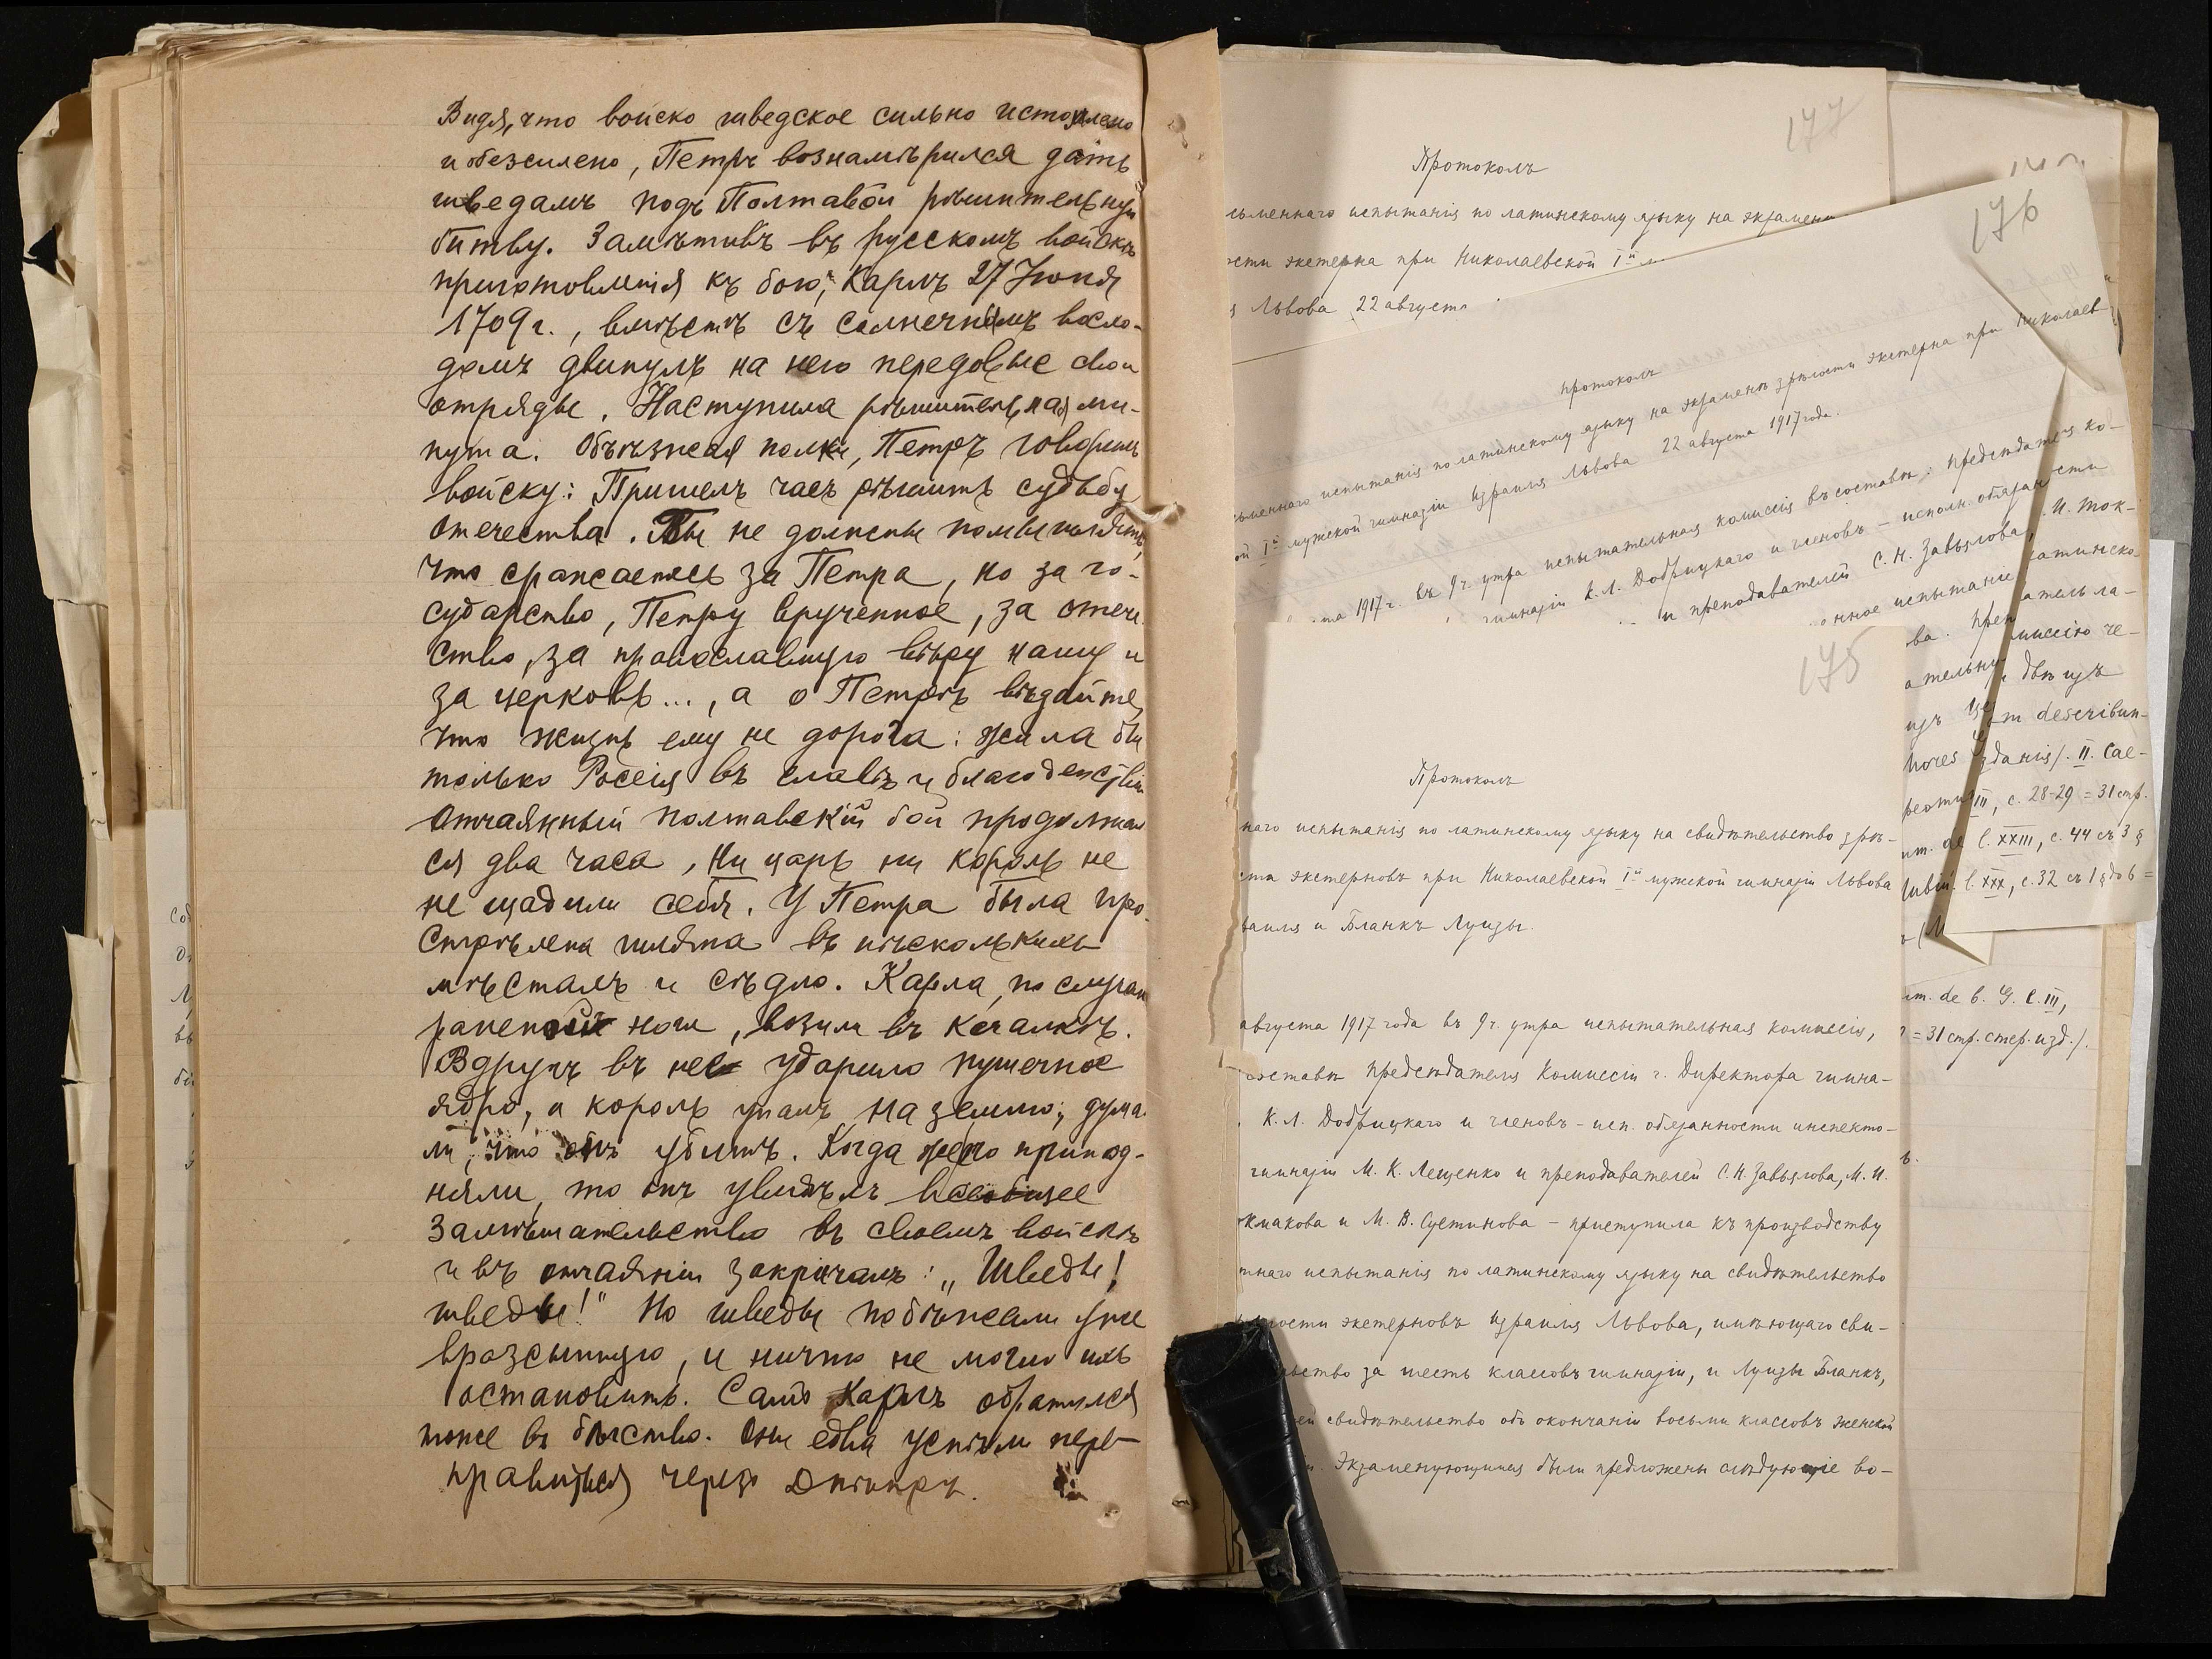 Видя, что войско шведское сильно истомлено
и обезсилено, Петръ вознамѣрился дать
шведамъ подъ Полтавой рѣшительную
битву. Замѣтивъ въ русскомъ войскѣ
приготовленія къ бою, Карлъ 27 Іюня
1709 г., вмѣстѣ съ солнечнымъ восхо-
домъ двинулъ на него передовые свои
отряды. Наступила рѣшительная ми-
нута. Объѣзжая полки, Петръ говорилъ
войску: Пришелъ часъ рѣшить судьбу
отечества. Вы не должны помышлять,
что сражаетесь за Петра, но за го-
сударство, Петру врученное, за отече
ство, за православную вѣру нашу и
за церковь..., а о Петрѣ вѣдайте,
что жизнь ему не дорога: жила бы
только Россія въ славѣ и благоденствіи
Отчаянный полтавскій бой продолжал
ся два часа, Ни царь ни король не
не щадили себя. У Петра была про-
стрѣлена шляпа въ нѣсколькихъ
мѣстахъ и сѣдло. Карла, по случаю
раненой ноги, возили въ качалкѣ.
Вдругъ въ нее ударило пушечное
ядро, и король упалъ на землю; дума
ли, что онъ убитъ. Когда же его припод-
няли, то онъ увидѣлъ всеобщее
замѣшательство въ своемъ войскѣ
и въ отчаяніи закричалъ: „Шведы!
шведы!" Но шведы побѣжали уже
вразсыпную, и ничто не могло ихъ
остановить. Самъ Карлъ обратился
тоже въ бѣгство. Они едва успѣли пере-
правиться черезъ Днѣпръ.
177
Протоколъ
ьменнаго испытанія по латинскому языку на экзамен
ости экстерна при Николаевской Iй
я Львова 22 август
176
протоколъ
ьменнаго испытанія по латинскому языку на экзаменъ зрѣлости экстерна при Николаев-
ой Iй мужской гимназіи Израиля Львова 22 августа 1917 года.
та 1917 г. въ 9 ч. утра испытательная комиссія въ составѣ: предсѣдателя ко-
гимназіи К. Л. Добрицкаго и членовъ - исполн. обязанности
и преподавателей С. Н. Завьялова, М. И. Ток-
онное испытаніе латинско
ва. Преп атель ла-
ательну миссію че-
изъ двѣ изъ
m describun-
hores зданія/. II. Cae-
III, с. 28-29 = 31 стр.
um. de l. XXIII, с. 44 съ 3 §
l. XXX, с. 32 съ 1 § до 6 =
um. de b. G. l. III,
= 31 стр. стер. изд./.
175
Протоколъ
наго испытанія по латинскому языку на свидѣтельство зрѣ-
ста экстерновъ при Николаевской Iй мужской гимназіи Львова
раиля и Бланкъ Луизы.
августа 1917 года въ 9 ч. утра испытательная комиссія,
составѣ предсѣдателя Комиссіи г. Директора гимна-
К. Л. Добрицкаго и членовъ - исп. обязанности инспекто-
гимназіи М. К. Лещенко и преподавателей С. Н. Завьялова, М. И.
окмакова и М. В. Сустинова - приступила къ производству
тнаго испытанія по латинскому языку на свидѣтельство
рѣлости экстерновъ Израиля Львова, имѣющаго сви-
льство за шесть классовъ гимназіи, и Луизы Бланкъ,
ей свидѣтельство объ окончаніи восьми классовъ женской
и. Экзаменующимся были предложены слѣдующіе во-